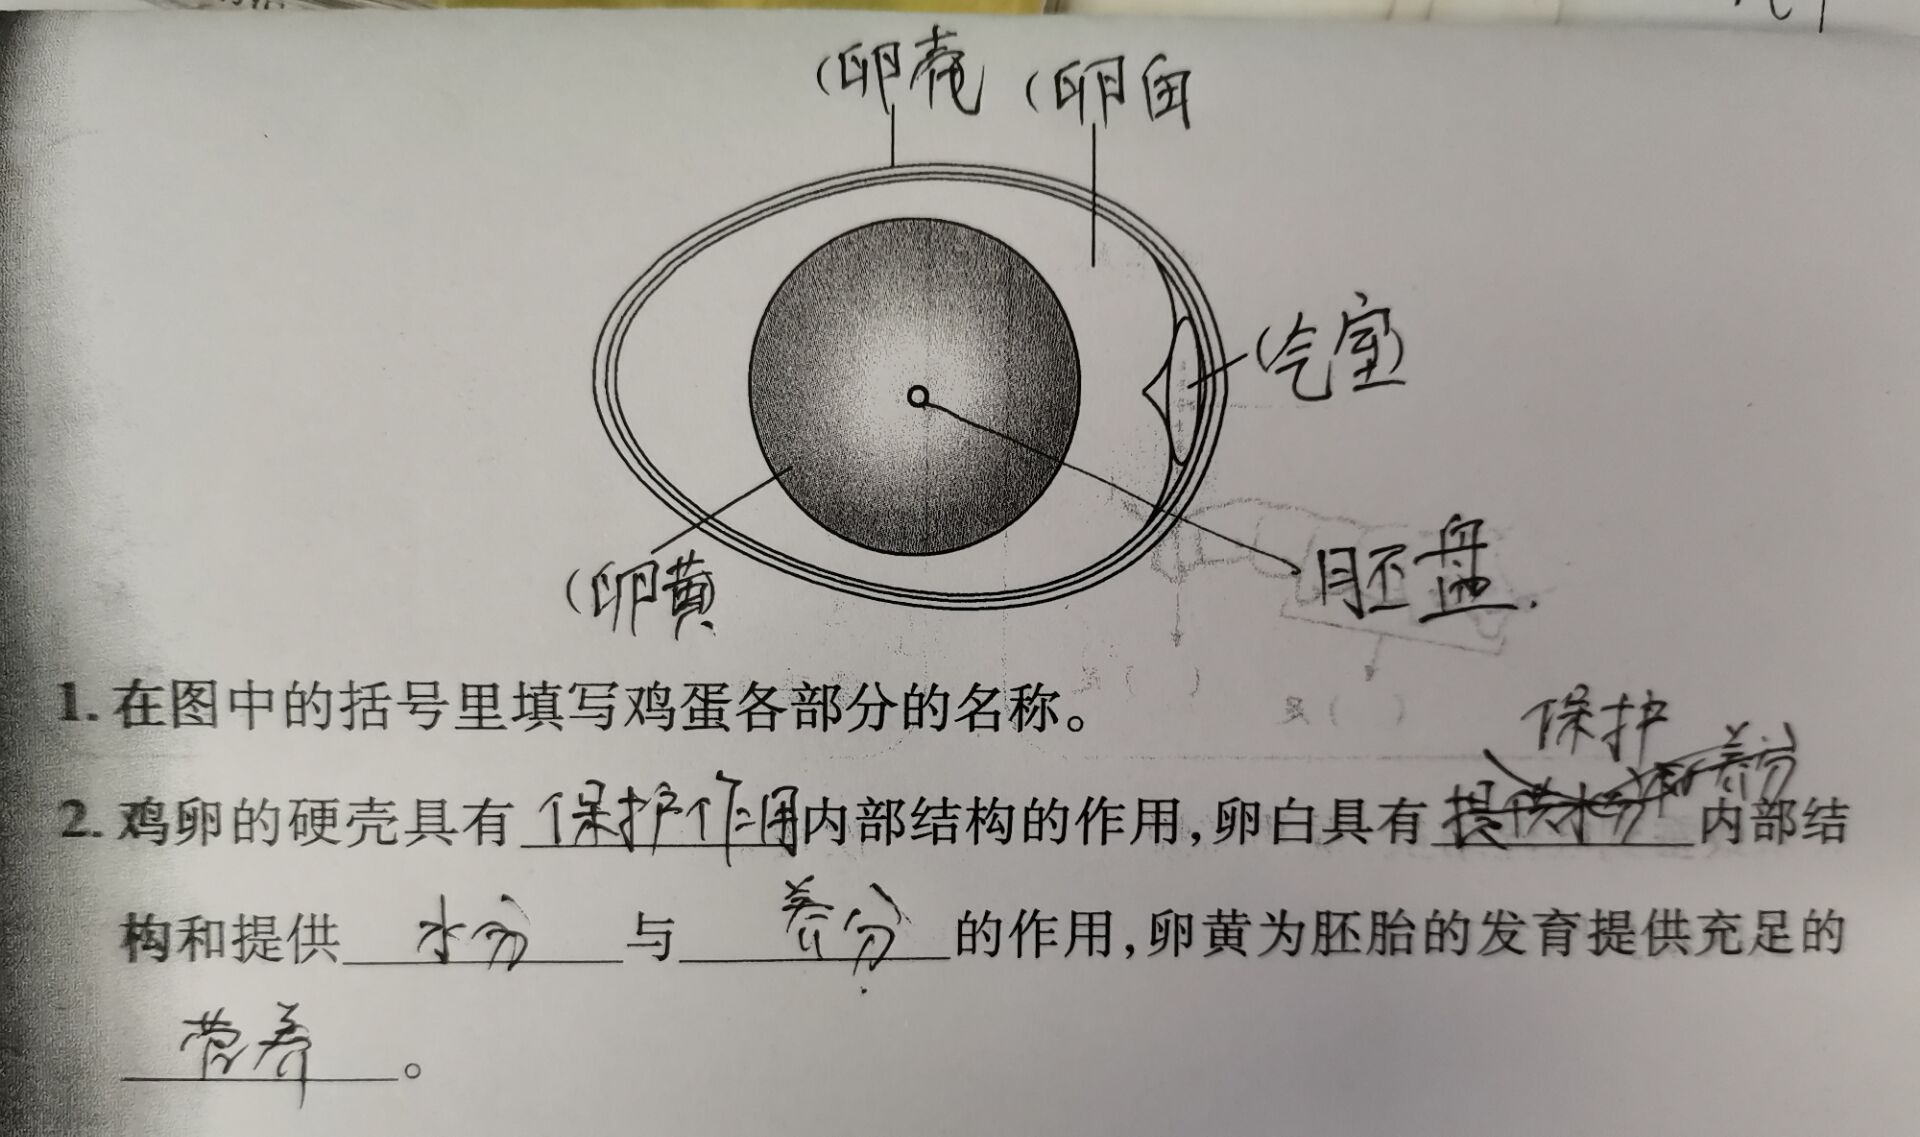 (卵壳 (卵白
(气室)
胚盘.
(卵黄
1. 在图中的括号里填写鸡蛋各部分的名称。
保护
2. 鸡卵的硬壳具有 保护作用 内部结构的作用,卵白具有 提供水分和养分 内部结
构和提供 水分 与 养分 的作用,卵黄为胚胎的发育提供充足的
营养 。